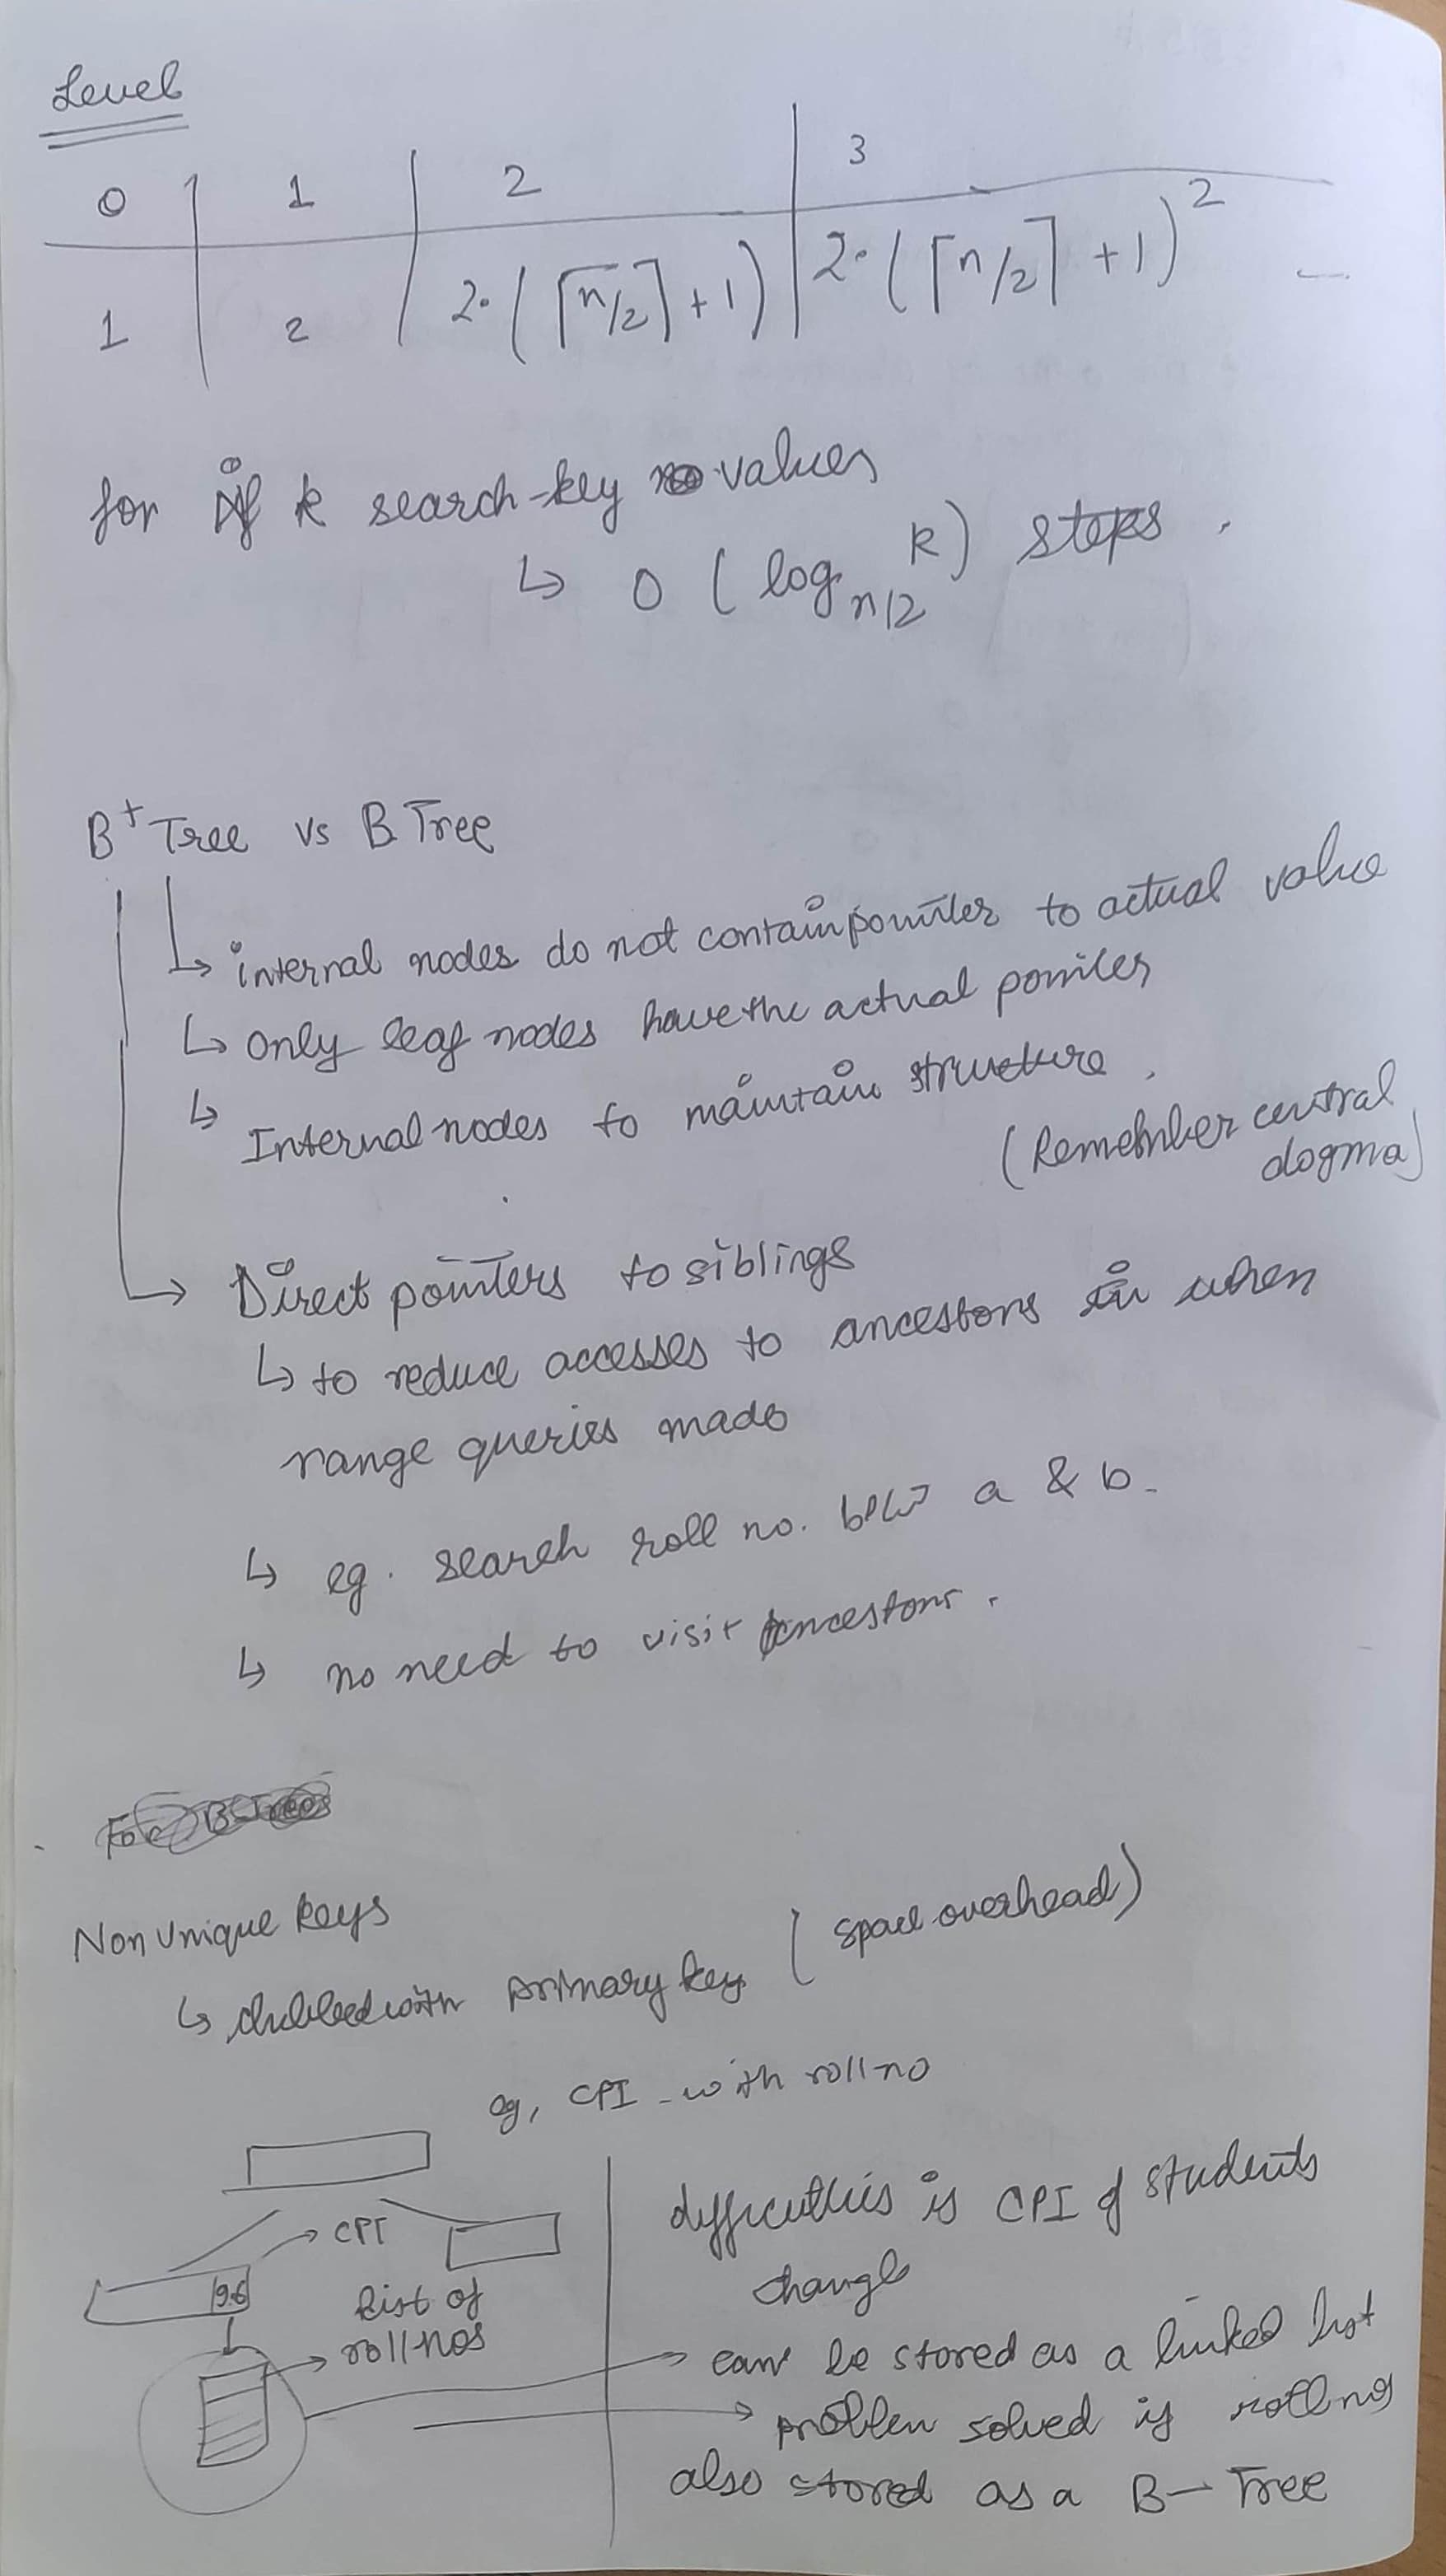 Level
0 1 2 3
1 2 2·(⌈n/2⌉+1) 2·(⌈n/2⌉+1)² —
for if k search-key values
↳ O(log_{n/2} k) steps.
B⁺ Tree vs B Tree
↳ internal nodes do not contain pointer to actual value
↳ only leaf nodes have the actual pointer
↳ Internal nodes to maintain structure.
(Remember central
dogma)
→ Direct pointers to siblings
↳ to reduce accesses to ancestors in when
range queries made
↳ eg. search roll no. b/w a & b.
↳ no need to visit ancestors.
For B-Trees
Non Unique keys
↳ clubbed with primary key (space overhead)
eg, CPI - with roll no
→ CPI
9.6
list of
→ roll nos
difficulties is CPI of students
change
→ can be stored as a linked list
→ problem solved if roll nos
also stored as a B-Tree